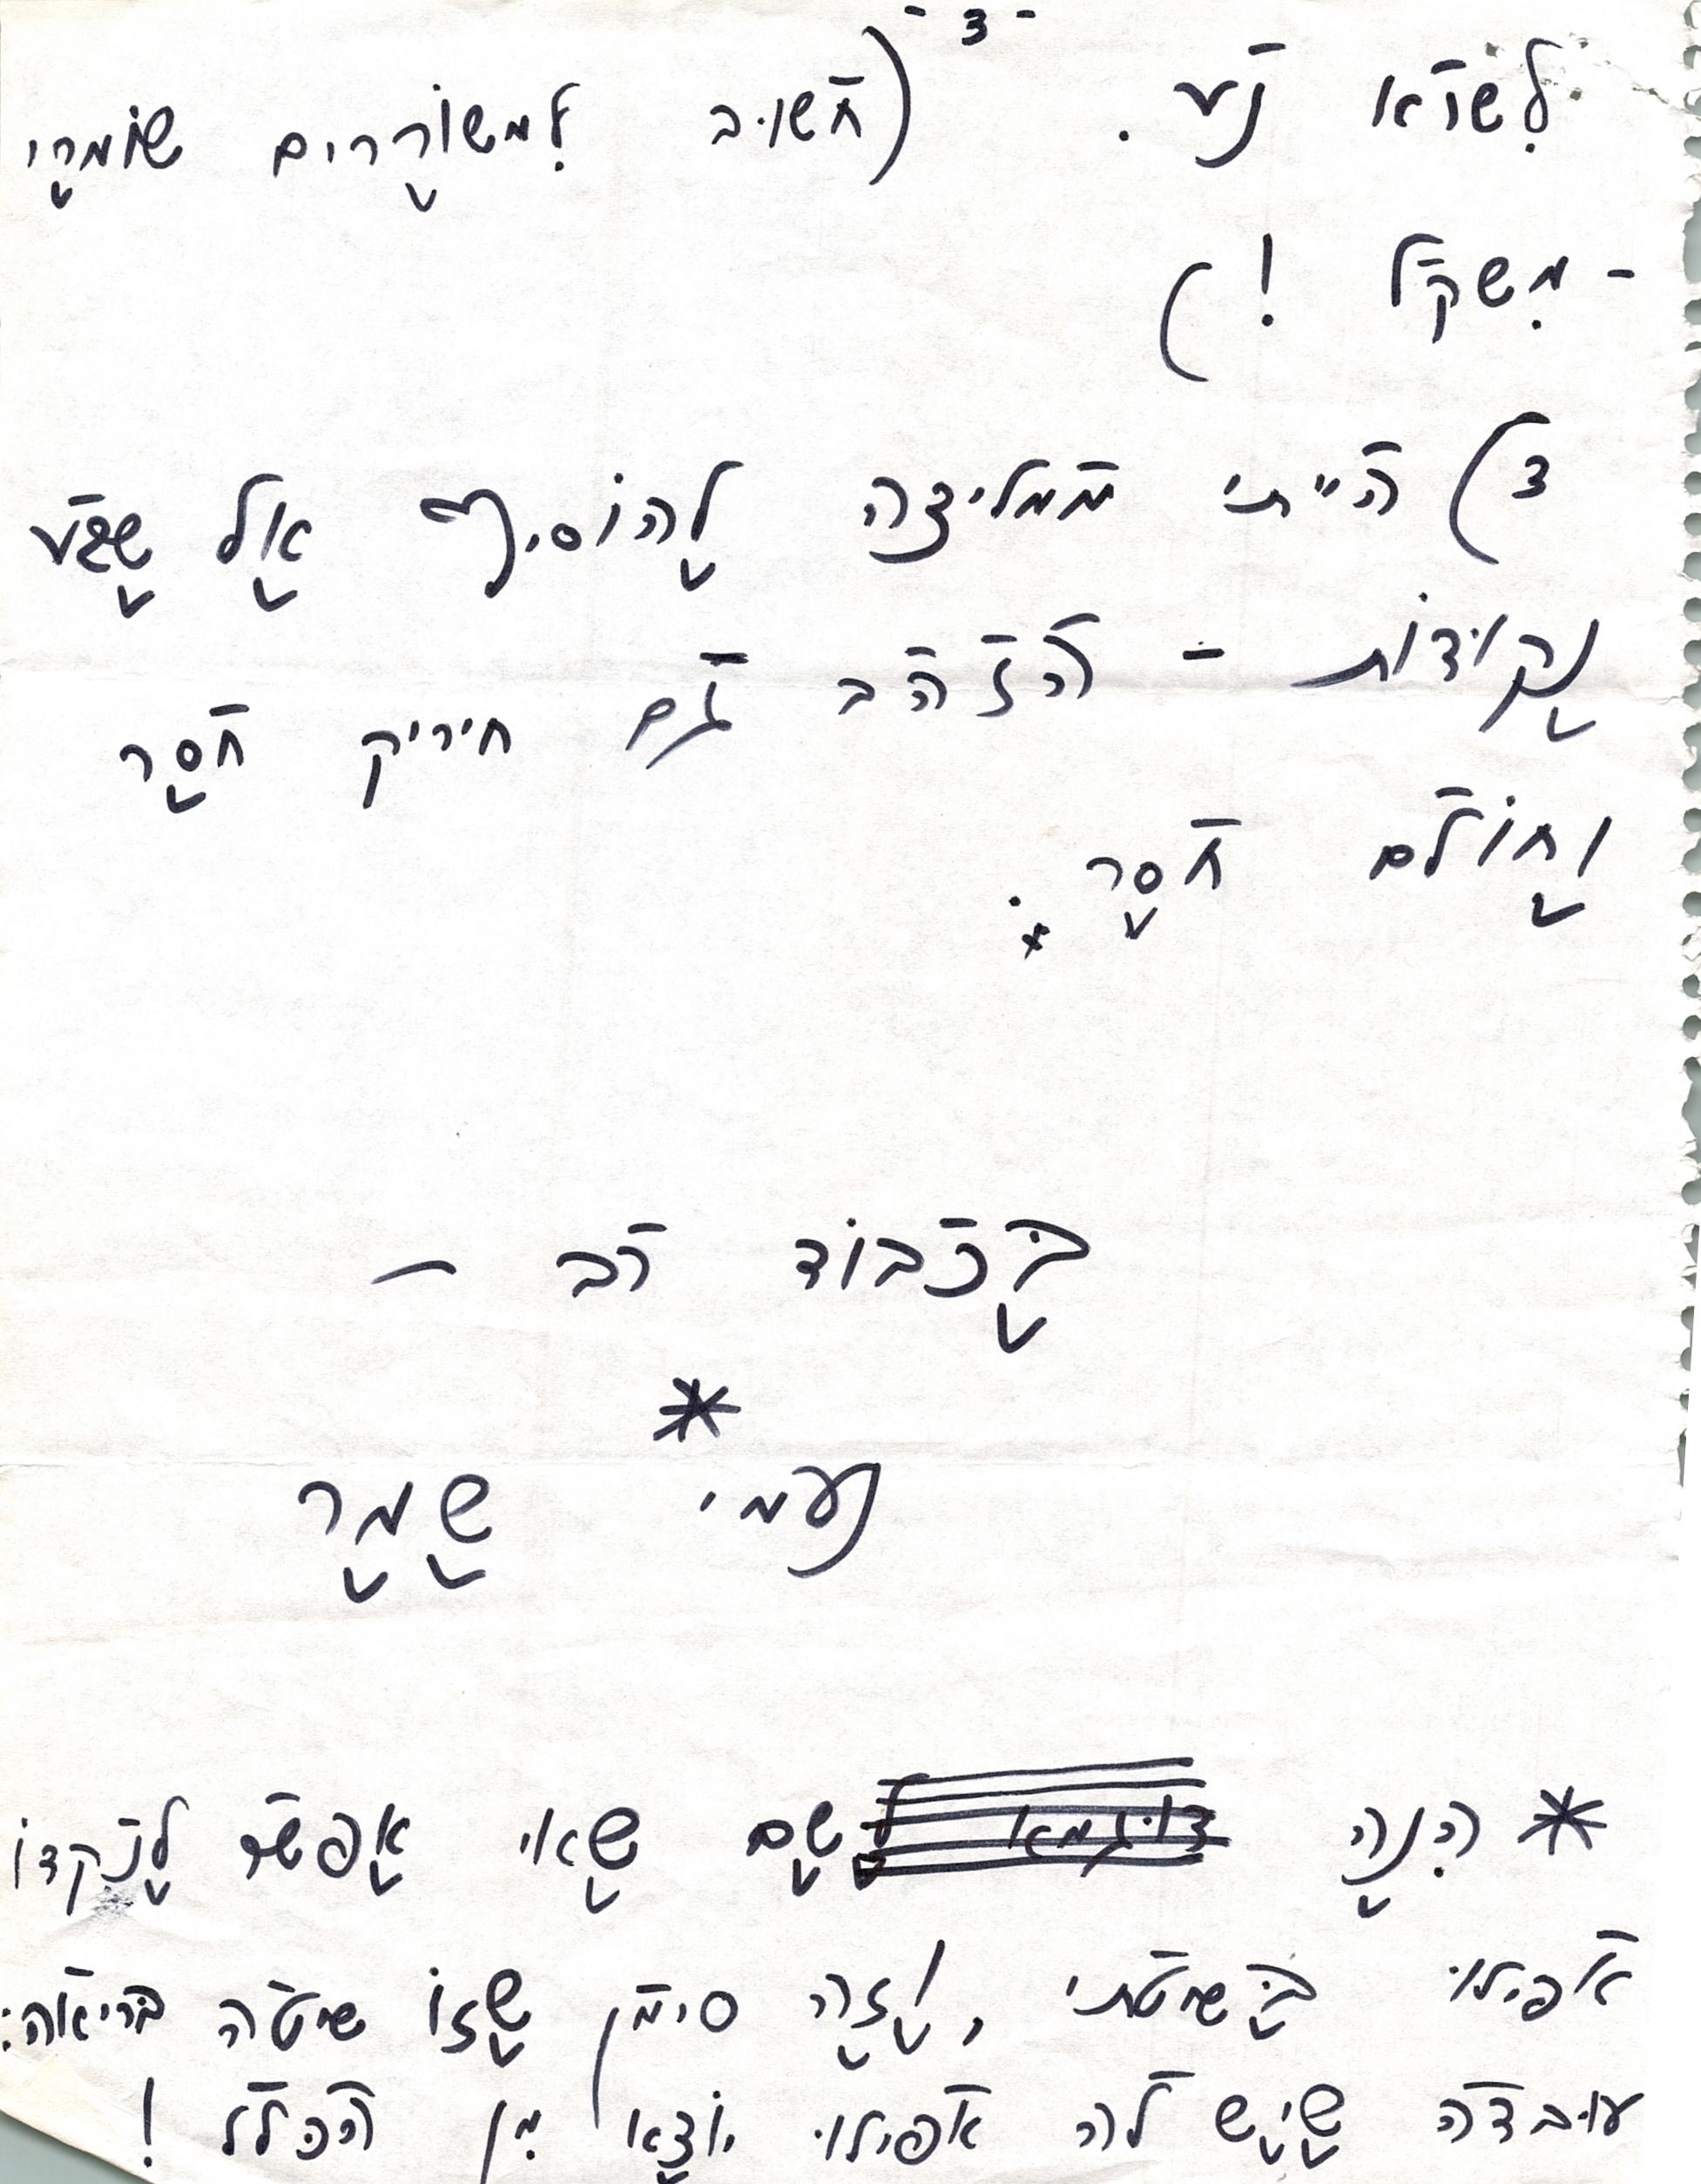 - 3 -
לשוא נע. (חשוב למשוררים שומרי
- משקל!)
3) הייתי ממליצה להוסיף אל שפע
נקודות - הזהב גם חיריק חסר
וחולם חסר.*
בכבוד רב -
*
נעמי שמר
* הנה דוגמא לשם שאי אפשר לנקדו
אפילו בשיטתי, וזה סימן שזו שיטה בריאה:
עובדה שיש לה אפילו יוצא מן הכלל!